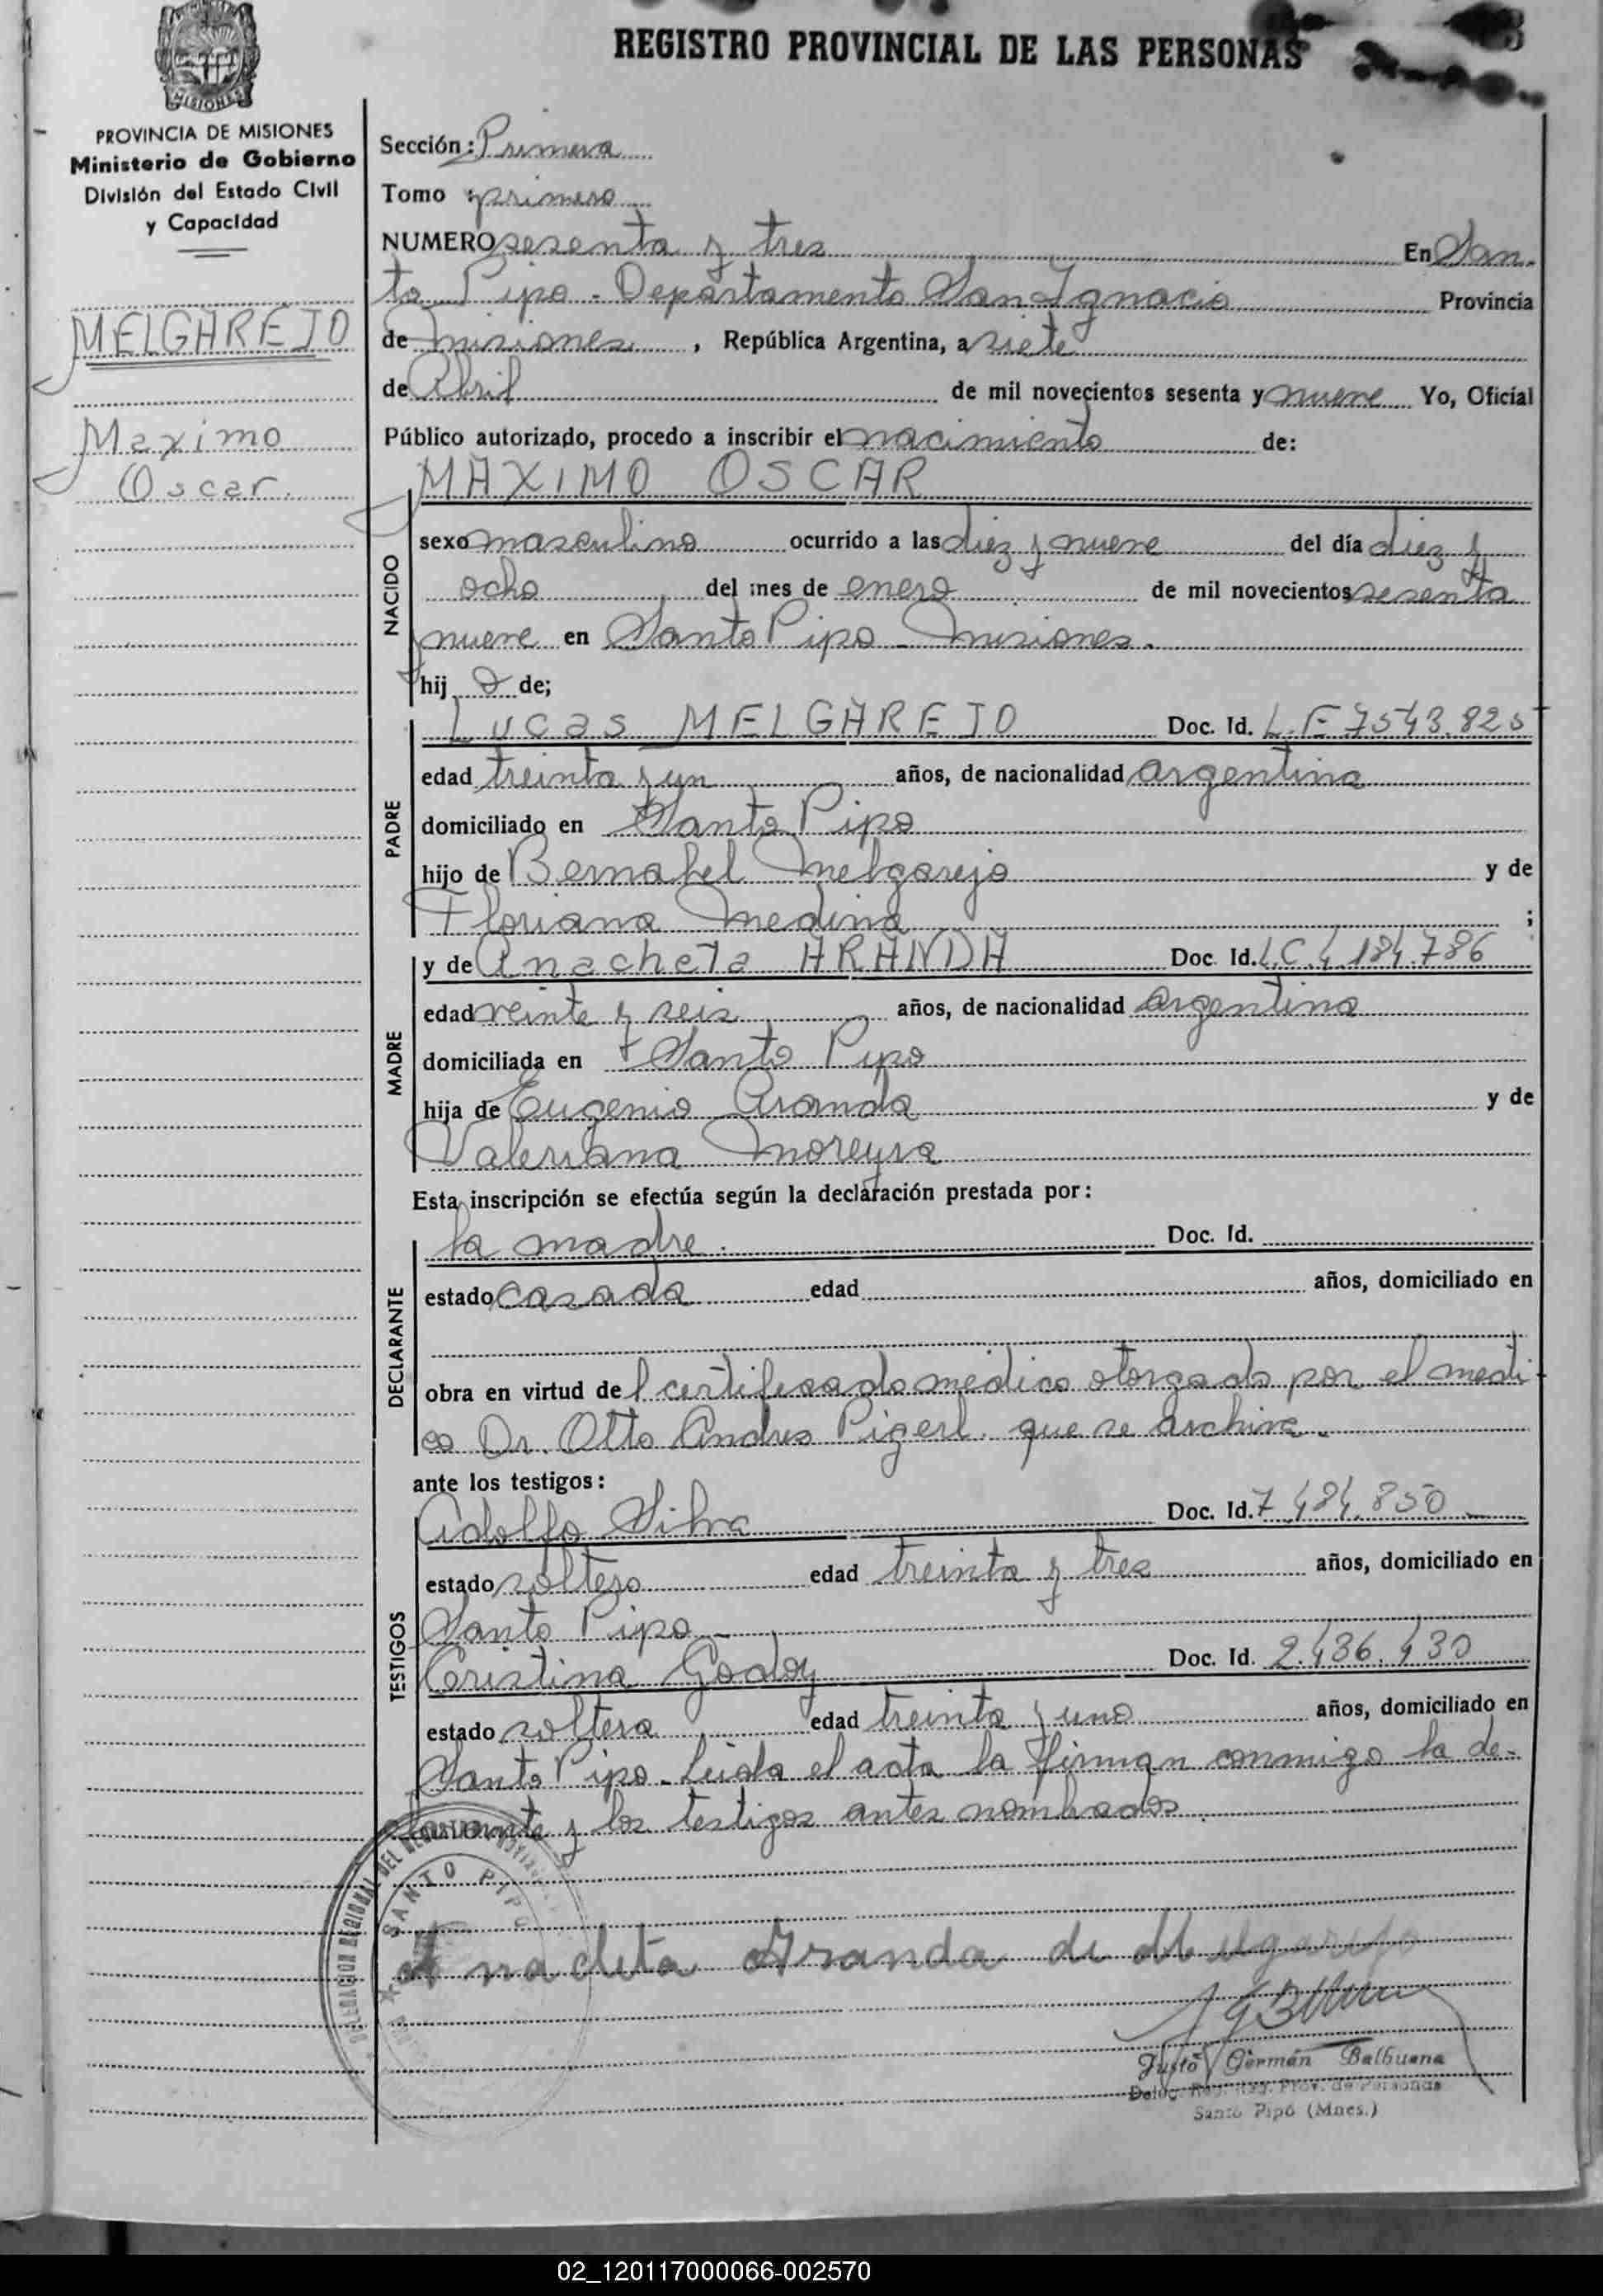 REGISTRO PROVINCIAL DE LAS PERSONAS
MISIONES
PROVINCIA DE MISIONES
Ministerio de Gobierno
División del Estado Civil
y Capacidad
MELGAREJO
Maximo
Oscar.
Sección: Primera
Tomo primero
NUMERO sesenta y tres En San-
to Pipo - Departamento San Ignacio Provincia
de Misiones, República Argentina, a siete
de Abril de mil novecientos sesenta y nueve Yo, Oficial
Público autorizado, procedo a inscribir el nacimiento de:
MAXIMO OSCAR
NACIDO
sexo masculino ocurrido a las diez y nueve del día diez y
ocho del mes de enero de mil novecientos sesenta
y nueve en Santo Pipo - Misiones.
hij o de;
PADRE
Lucas MELGAREJO Doc. Id. L.E 7543.825
edad treinta y un años, de nacionalidad argentina
domiciliado en Santo Pipo
hijo de Bernabel Melgarejo y de
Floriana Medina ;
MADRE
y de Anacheta ARANDA Doc. Id. L.C.4.184.786
edad veinte y seis años, de nacionalidad argentina
domiciliada en Santo Pipo
hija de Eugenio Aranda y de
Valeriana Moreyra
Esta inscripción se efectúa según la declaración prestada por:
DECLARANTE
la madre. Doc. Id.
estado casada edad años, domiciliado en
obra en virtud de l certificado medico otorgado por el medi
co Dr. Otto Andres Pigerl. que se archiva.
ante los testigos:
TESTIGOS
Adolfo Silva Doc. Id. 7.484.850
estado soltero edad treinta y tres años, domiciliado en
Santo Pipo
Cristina Godoy Doc. Id. 2.436.430
estado soltera edad treinta y uno años, domiciliado en
Santo Pipo. Leida el acta la firman conmigo la de-
clarante y los testigos antes nombrados
SANTO PIPO
Anacleta Aranda de Melgarejo
Justo Germán Balbuena
Deleg. Reg. Reg. Prov. de Personas
Santo Pipó (Mnes.)
02_120117000066-002570